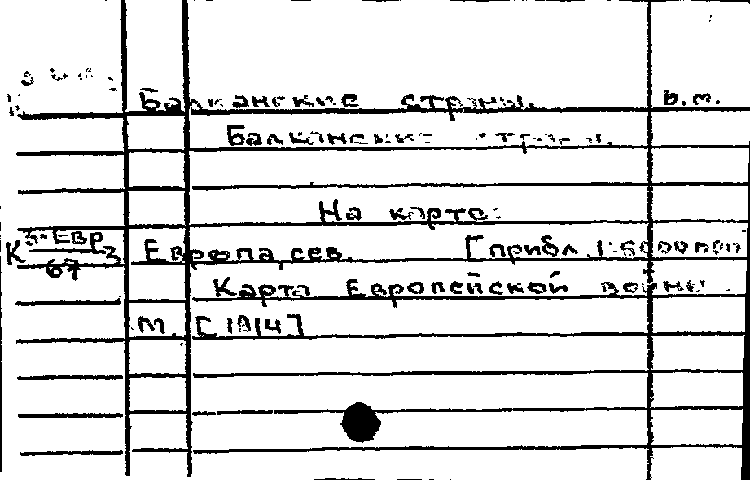 Балканские страны. б.м.
Балканские страны.
На карте:
К 3-ЕВР/67 3 Европа, сев. [прибл. 1:6000000
Карта Европейской войны.
М. [1914]